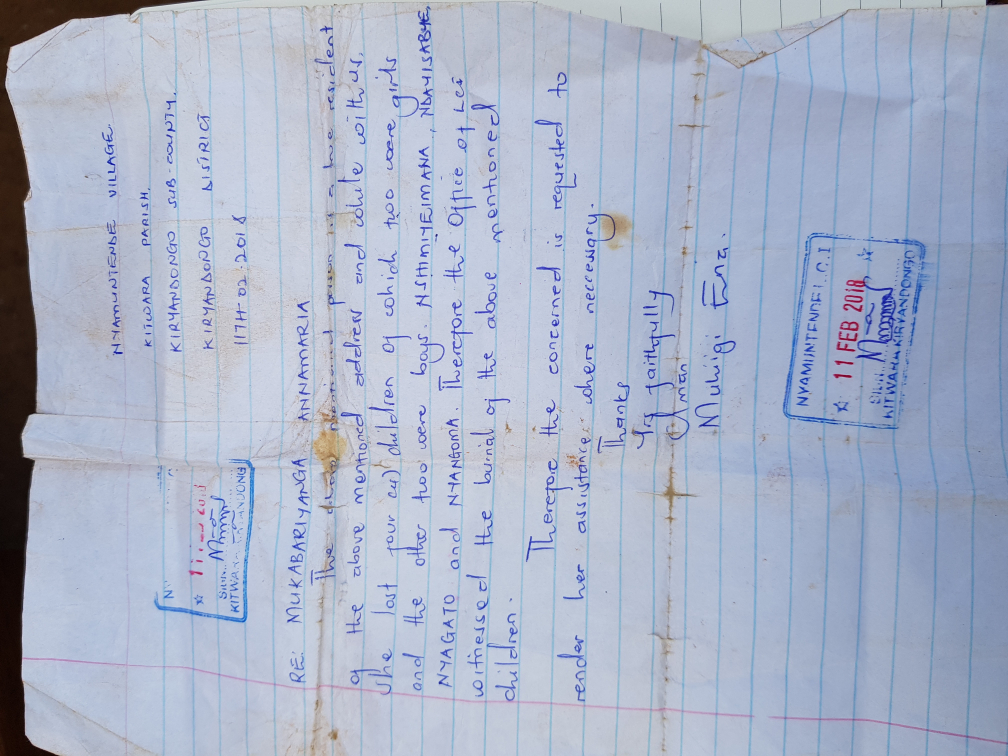 NYAMUNTENDE VILLAGE.
KITWARA PARISH.
KIRYANDONGO SUB-COUNTY.
KIRYANDONGO DISTRICT
11TH-02-2018
SIGN.
KITWARA KIRYANDONGO
RE: MUKABARIYANGA ANNAMARIA
The above mentioned person is a true resident
of the above mentioned address and while with us,
She lost four (4) children of which two were girls
and the other two were boys. NSHIMIYEIMANA, NDAYISABYE,
NYAGATO and NYANGOMA. Therefore the Office of LCI
witnessed the burial of the above mentioned
children.
Therefore the concerned is requested to
render her assistance where neccessary.
Thanks
Yrs faithfully
Muhigi Ena.
NYAMUNTENDE L.C.I
11 FEB 2018
SIGN.
KITWARA KIRYANDONGO